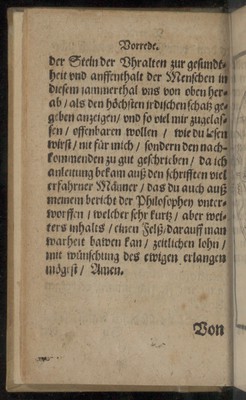 Vorrede.
der Stein der Vhralten zur gesundt-
heit vnd auffenthalt der Menschen in
diesem jammerthal vns von oben her-
ab / als den höchsten jrdischen schatz ge-
geben anzeigen / vnd so viel mir zugelas-
sen / offenbaren wollen / wie du lesen
wirst / nit für mich / sondern den nach-
kommenden zu gut geschrieben / da ich
anleitung bekam auß den schrifften viel
erfahrner Männer / das du auch auß
meinem bericht der Philosophey vnter-
worffen / welcher sehr kurtz / aber wei-
ters inhalts / einen Felß / darauff man
warheit bawen kan / zeitlichen lohn /
mit wünschung des ewigen erlangen
mögest / Amen.
Von